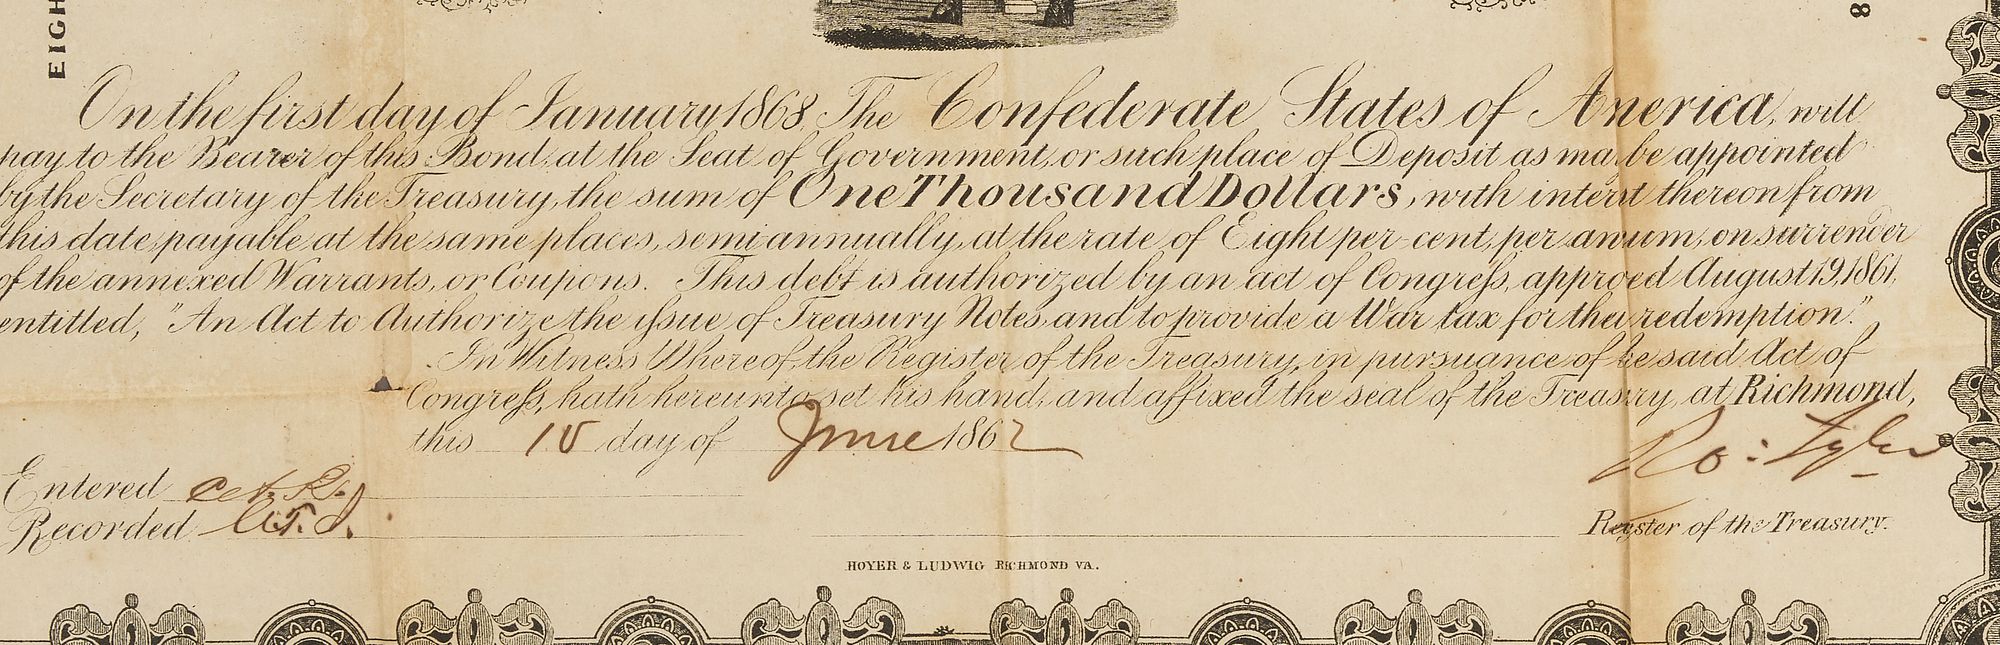 EIGH
8
On the first day of January 1868, The Confederate States of America, will
pay to the Bearer of this Bond, at the Seat of Government, or such place of Deposit as may be appointed
by the Secretary of the Treasury, the sum of One Thousand Dollars, with interest thereon from
this date, payable at the same places, semiannually, at the rate of Eight per-cent, per annum, on surrender
of the annexed Warrants, or Coupons. This debt is authorized by an act of Congress, approved August 19, 1861,
entitled, "An Act to Authorize the issue of Treasury Notes, and to provide a War tax for their redemption."
In Witness Whereof, the Register of the Treasury, in pursuance of the said Act of
Congress, hath hereunto set his hand, and affixed the seal of the Treasury, at Richmond,
this 10 day of June 1862
Ro: Tyler
Entered
Recorded
Register of the Treasury.
HOYER & LUDWIG RICHMOND VA.